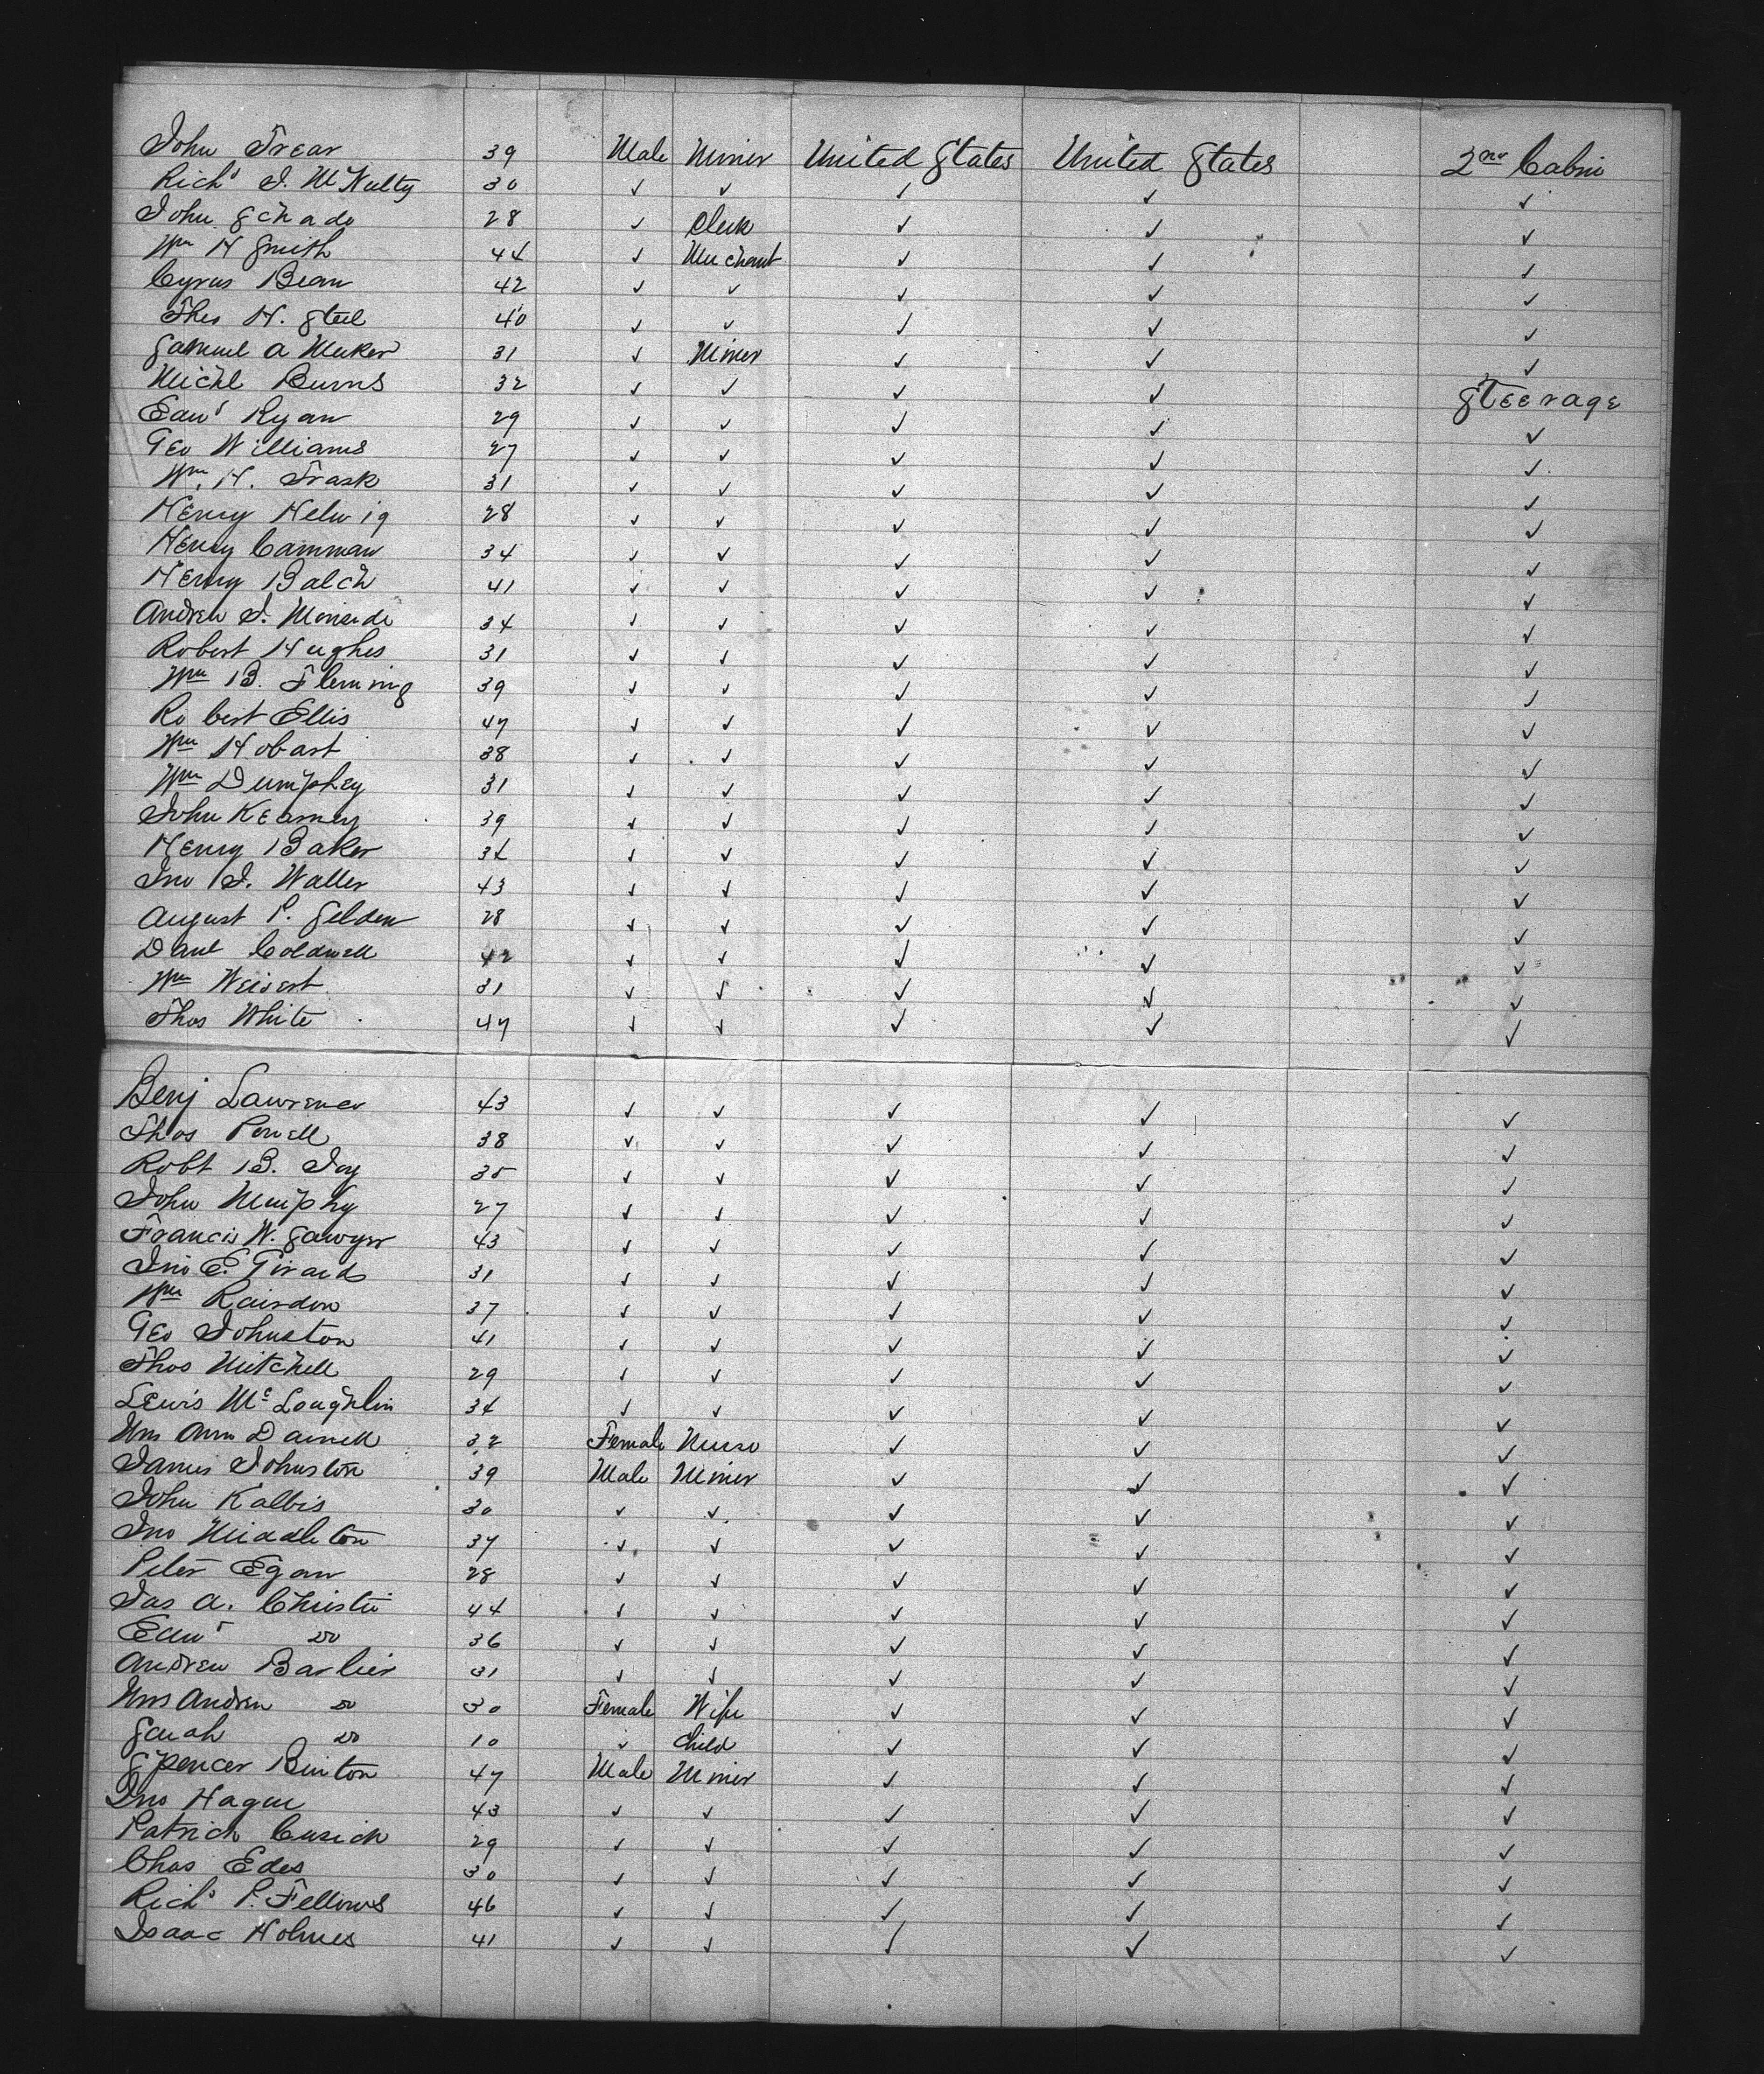 John Frear 39 Male Miner United States United States 2nd Cabin
Richd J. McNulty 30 ✓ ✓ ✓ ✓ ✓
John Schade 28 ✓ Clerk ✓ ✓ ✓
Wm H Smith 44 ✓ Merchant ✓ ✓ ✓
Cyrus Bean 42 ✓ ✓ ✓ ✓ ✓
Thos H. Steel 40 ✓ ✓ ✓ ✓ ✓
Samuel A Meeker 31 ✓ Miner ✓ ✓ ✓
Michl Burns 32 ✓ ✓ ✓ ✓ Steerage
Edwd Ryan 29 ✓ ✓ ✓ ✓ ✓
Geo Williams 27 ✓ ✓ ✓ ✓ ✓
Wm. H. Trask 31 ✓ ✓ ✓ ✓ ✓
Henry Helwig 28 ✓ ✓ ✓ ✓ ✓
Henry Camman 34 ✓ ✓ ✓ ✓ ✓
Henry Balch 41 ✓ ✓ ✓ ✓ ✓
Andrew J. 34 ✓ ✓ ✓ ✓ ✓
Robert Hughes 31 ✓ ✓ ✓ ✓ ✓
Wm B. Fleming 39 ✓ ✓ ✓ ✓ ✓
Robert Ellis 47 ✓ ✓ ✓ ✓ ✓
Wm Hobart 38 ✓ ✓ ✓ ✓ ✓
Wm Dumphey 31 ✓ ✓ ✓ ✓ ✓
John Kearney 39 ✓ ✓ ✓ ✓ ✓
Henry Baker 34 ✓ ✓ ✓ ✓ ✓
Jno J. Waller 43 ✓ ✓ ✓ ✓ ✓
August P. Selden 28 ✓ ✓ ✓ ✓ ✓
Danl Coldwell 42 ✓ ✓ ✓ ✓ ✓
Wm Weisert 31 ✓ ✓ ✓ ✓ ✓
Thos White 47 ✓ ✓ ✓ ✓ ✓
Benj Lawrence 43 ✓ ✓ ✓ ✓ ✓
Thos Powell 38 ✓ ✓ ✓ ✓ ✓
Robt B. Joy 35 ✓ ✓ ✓ ✓ ✓
John Murphy 27 ✓ ✓ ✓ ✓ ✓
Francis W. Sawyer 43 ✓ ✓ ✓ ✓ ✓
Jno E. Girards 31 ✓ ✓ ✓ ✓ ✓
Wm Rairdon 37 ✓ ✓ ✓ ✓ ✓
Geo Johnston 41 ✓ ✓ ✓ ✓ ✓
Thos Mitchell 29 ✓ ✓ ✓ ✓ ✓
Lewis McLoughlin 34 ✓ ✓ ✓ ✓ ✓
Mrs Ann Darnell 32 Female Nurse ✓ ✓ ✓
James Johnston 39 Male Miner ✓ ✓ ✓
John Kalbis 30 ✓ ✓ ✓ ✓ ✓
Jno Middleton 37 ✓ ✓ ✓ ✓ ✓
Peter Egan 28 ✓ ✓ ✓ ✓ ✓
Jas A. Christie 44 ✓ ✓ ✓ ✓ ✓
Edwd do 36 ✓ ✓ ✓ ✓ ✓
Andrew Barbier 31 ✓ ✓ ✓ ✓ ✓
Mrs Andrew do 30 Female Wife ✓ ✓ ✓
Sarah do 10 ✓ Child ✓ ✓ ✓
Spencer Binton 47 Male Miner ✓ ✓ ✓
Jno Hague 43 ✓ ✓ ✓ ✓ ✓
Patrick Cusick 29 ✓ ✓ ✓ ✓ ✓
Chas Edes 30 ✓ ✓ ✓ ✓ ✓
Richd P. Fellows 46 ✓ ✓ ✓ ✓ ✓
Isaac Holmes 41 ✓ ✓ ✓ ✓ ✓